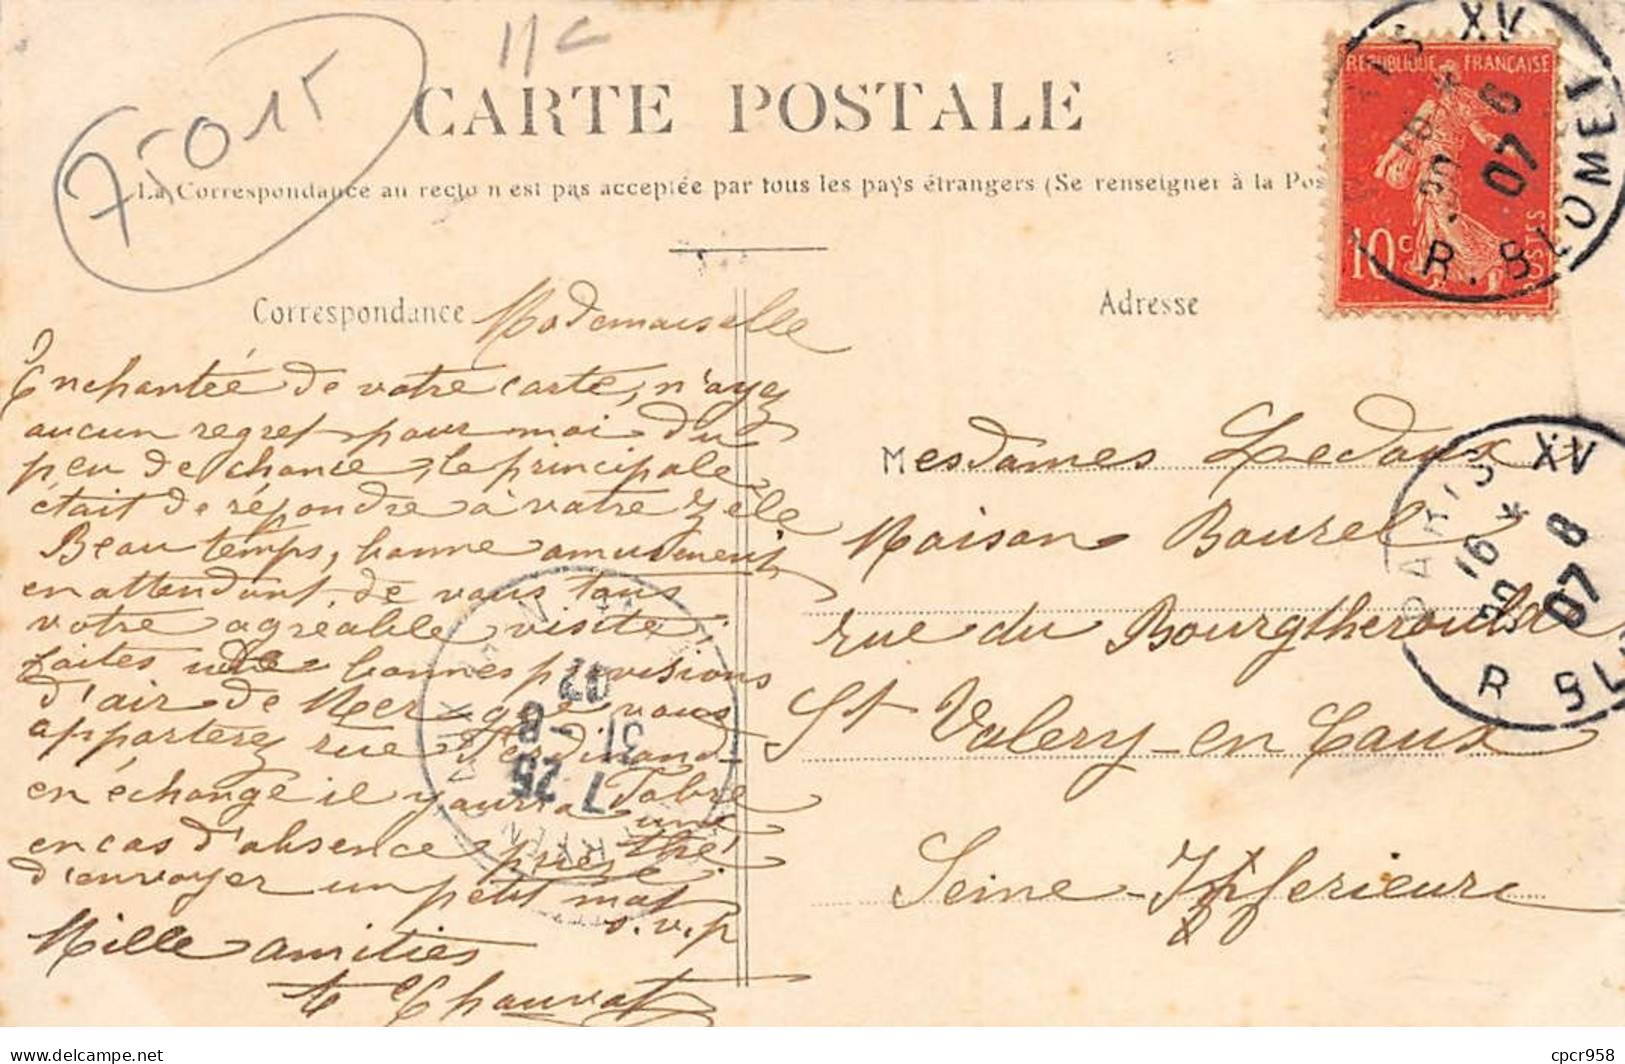 11c
75015
CARTE POSTALE
La Correspondance au recto n'est pas acceptée par tous les pays étrangers (Se renseigner à la Pos
REPUBLIQUE FRANÇAISE
10c
POSTES
PARIS XV
16 *
30 8
07
R. BLOMET
Correspondance
Adresse
Mademoiselle
Enchantée de votre carte, n'ayez
aucun regret pour moi du
peu de chance, le principale
était de répondre à votre zèle
Beau temps, bonne amusement
en attendant de vous tous
votre agréable visite
faites de bonnes provisions
d'air de Mer que vous
apporterez rue Ferdinand
Fabre
en échange il y aura une
en cas d'absence prière
d'envoyer un petit mot
s.v.p
Mille amities
Chauvat
Mesdames Ledoux
Maison Bourel
rue du Bourgtheroulde
St Valery-en Caux
Seine-Inferieure
PARIS XV
16 *
30 8
07
R BL
7 25
31 -8
07
Delcampe.net
cpcr958